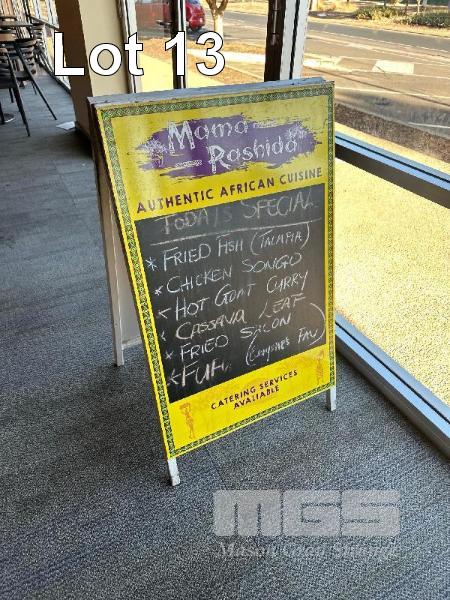 Lot 13
Mama
Rashida
AUTHENTIC AFRICAN CUISINE
TODAYS SPECIAL
* FRIED FISH (TALAPIA)
* CHICKEN SONGO
* HOT GOAT CURRY
* CASSAVA LEAF
* FRIED
* FUFU
CATERING SERVICES
AVALIABLE
MGS
Mason Gray Strange